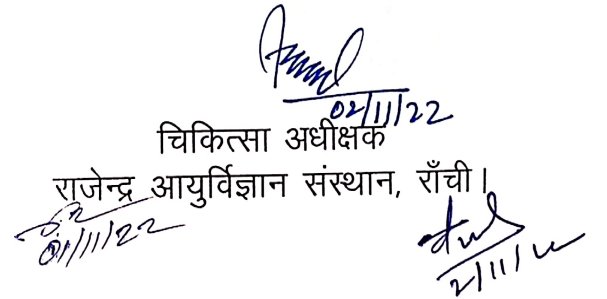 02/11/22
चिकित्सा अधीक्षक
राजेन्द्र आयुर्विज्ञान संस्थान, राँची।
01/11/22
2/11/22